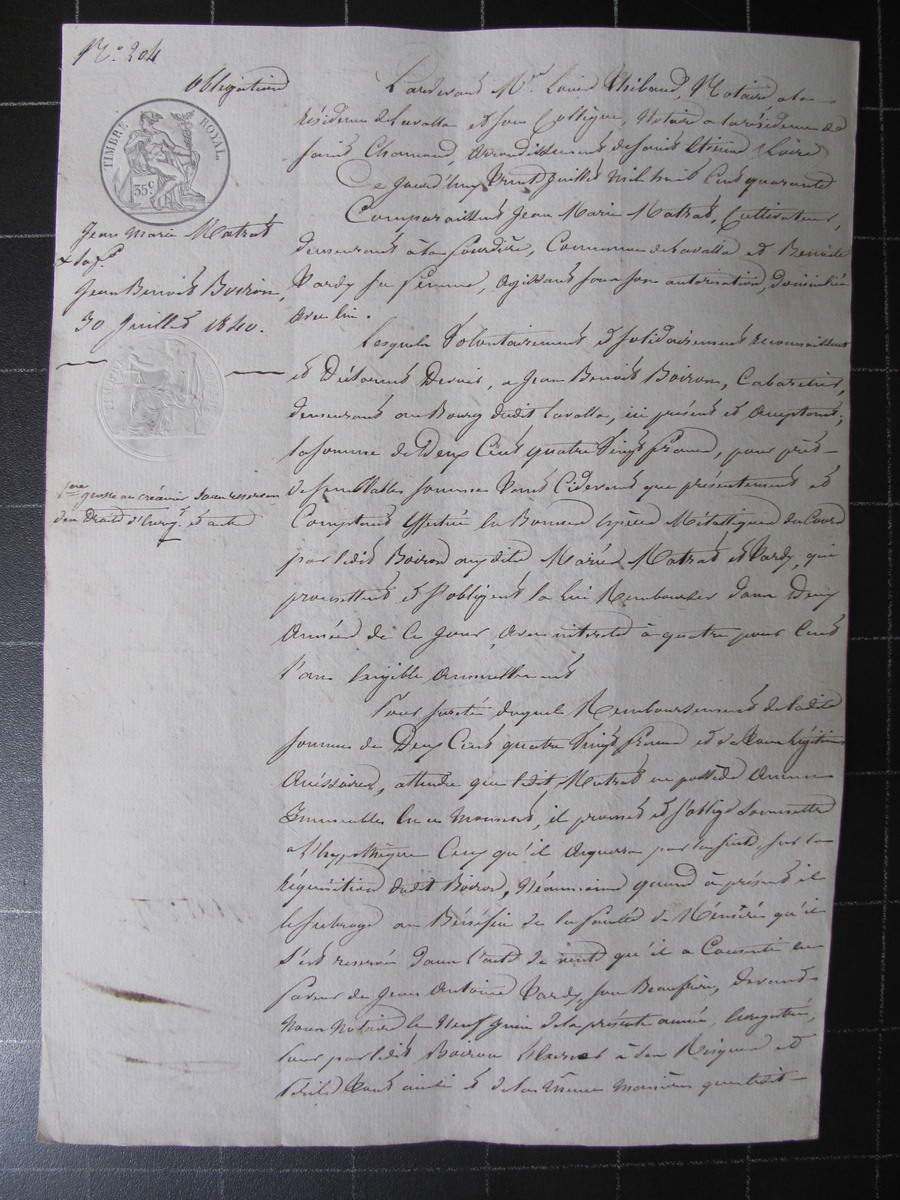 N.° 204
Obligation
TIMBRE ROYAL.
35 c
Jean Marie Matrat
& sa f.e
Jean Benoit Boiron,
30 Juillet 1840.
grosse au créancier sous réserve
d'un Droit d'Enreg.t et acte
Pardevant M.e Louis Thibaud, Notaire a la
résidence de Lavalla et son Collègue, Notaire a la résidence de
Saint Chamond, Arrondissement de Saint Etienne Loire
Ce Jourd'huy trente Juillet Mil huit Cent quarante
Comparaissent Jean Marie Matrat, Cultivateur,
demeurant à la Commune de Lavalla et Benoite
Tardy sa femme, agissant sous son autorisation, domiciliée
avec lui.
Lesquels Volontairement et solidairement reconnaissent
et Déclarent Devoir, a Jean Benoit Boiron, Cabaretier,
demeurant au Bourg dudit Lavalla, ici présent et acceptant;
la somme de Deux Cent quatre Vingt francs, pour prêt
de semblable somme que présentement et
Comptant Effectué En Bonnes Espèces Métalliques du Cours
par ledit Boiron auxdits Mariés Matrat et Tardy, qui
promettent et s'obligent la lui Rembourser dans Deux
Années de Ce Jour, avec intérêts à quatre pour Cent
l'an Exigible annuellement
Pour sureté duquel Remboursement de ladite
somme de Deux Cent quatre Vingt francs et de tous légitimes
accessoires, attendu que ledit Matrat ne possède aucuns
Immeubles En ce Moment, il promet et s'oblige soumettre
a l'hypothèque Ceux qu'il acquerra par la suite, sur la
réquisition dudit Boiron, Néanmoins quand à présent il
le subroge au Bénéfice de la faculté de Réméré qu'il
s'est reservée dans l'acte de vente qu'il a Consentie en
faveur de Jean Antoine Tardy, son Beaufrère, devant
Nous Notaire le Neuf Juin de la présente année, Enregistré,
pour par ledit Boiron Exercer à ses Risques et
Périls tout ainsi et de la même manière que ledit